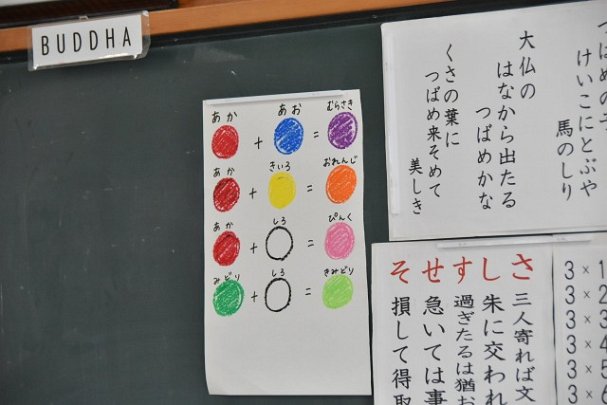 BUDDHA
あか + あお = むらさき
あか + きいろ = おれんじ
あか + しろ = ぴんく
みどり + しろ = きみどり
けいこにとぶや
馬のしり
大仏の
はなから出たる
つばめかな
くさの葉に
つばめ来そめて
美しき
さしすせそ
三人寄れば文
朱に交われ
過ぎたるは猶お
急いては事
損して得取
3×1
3×2
3×3
3×4
3×5